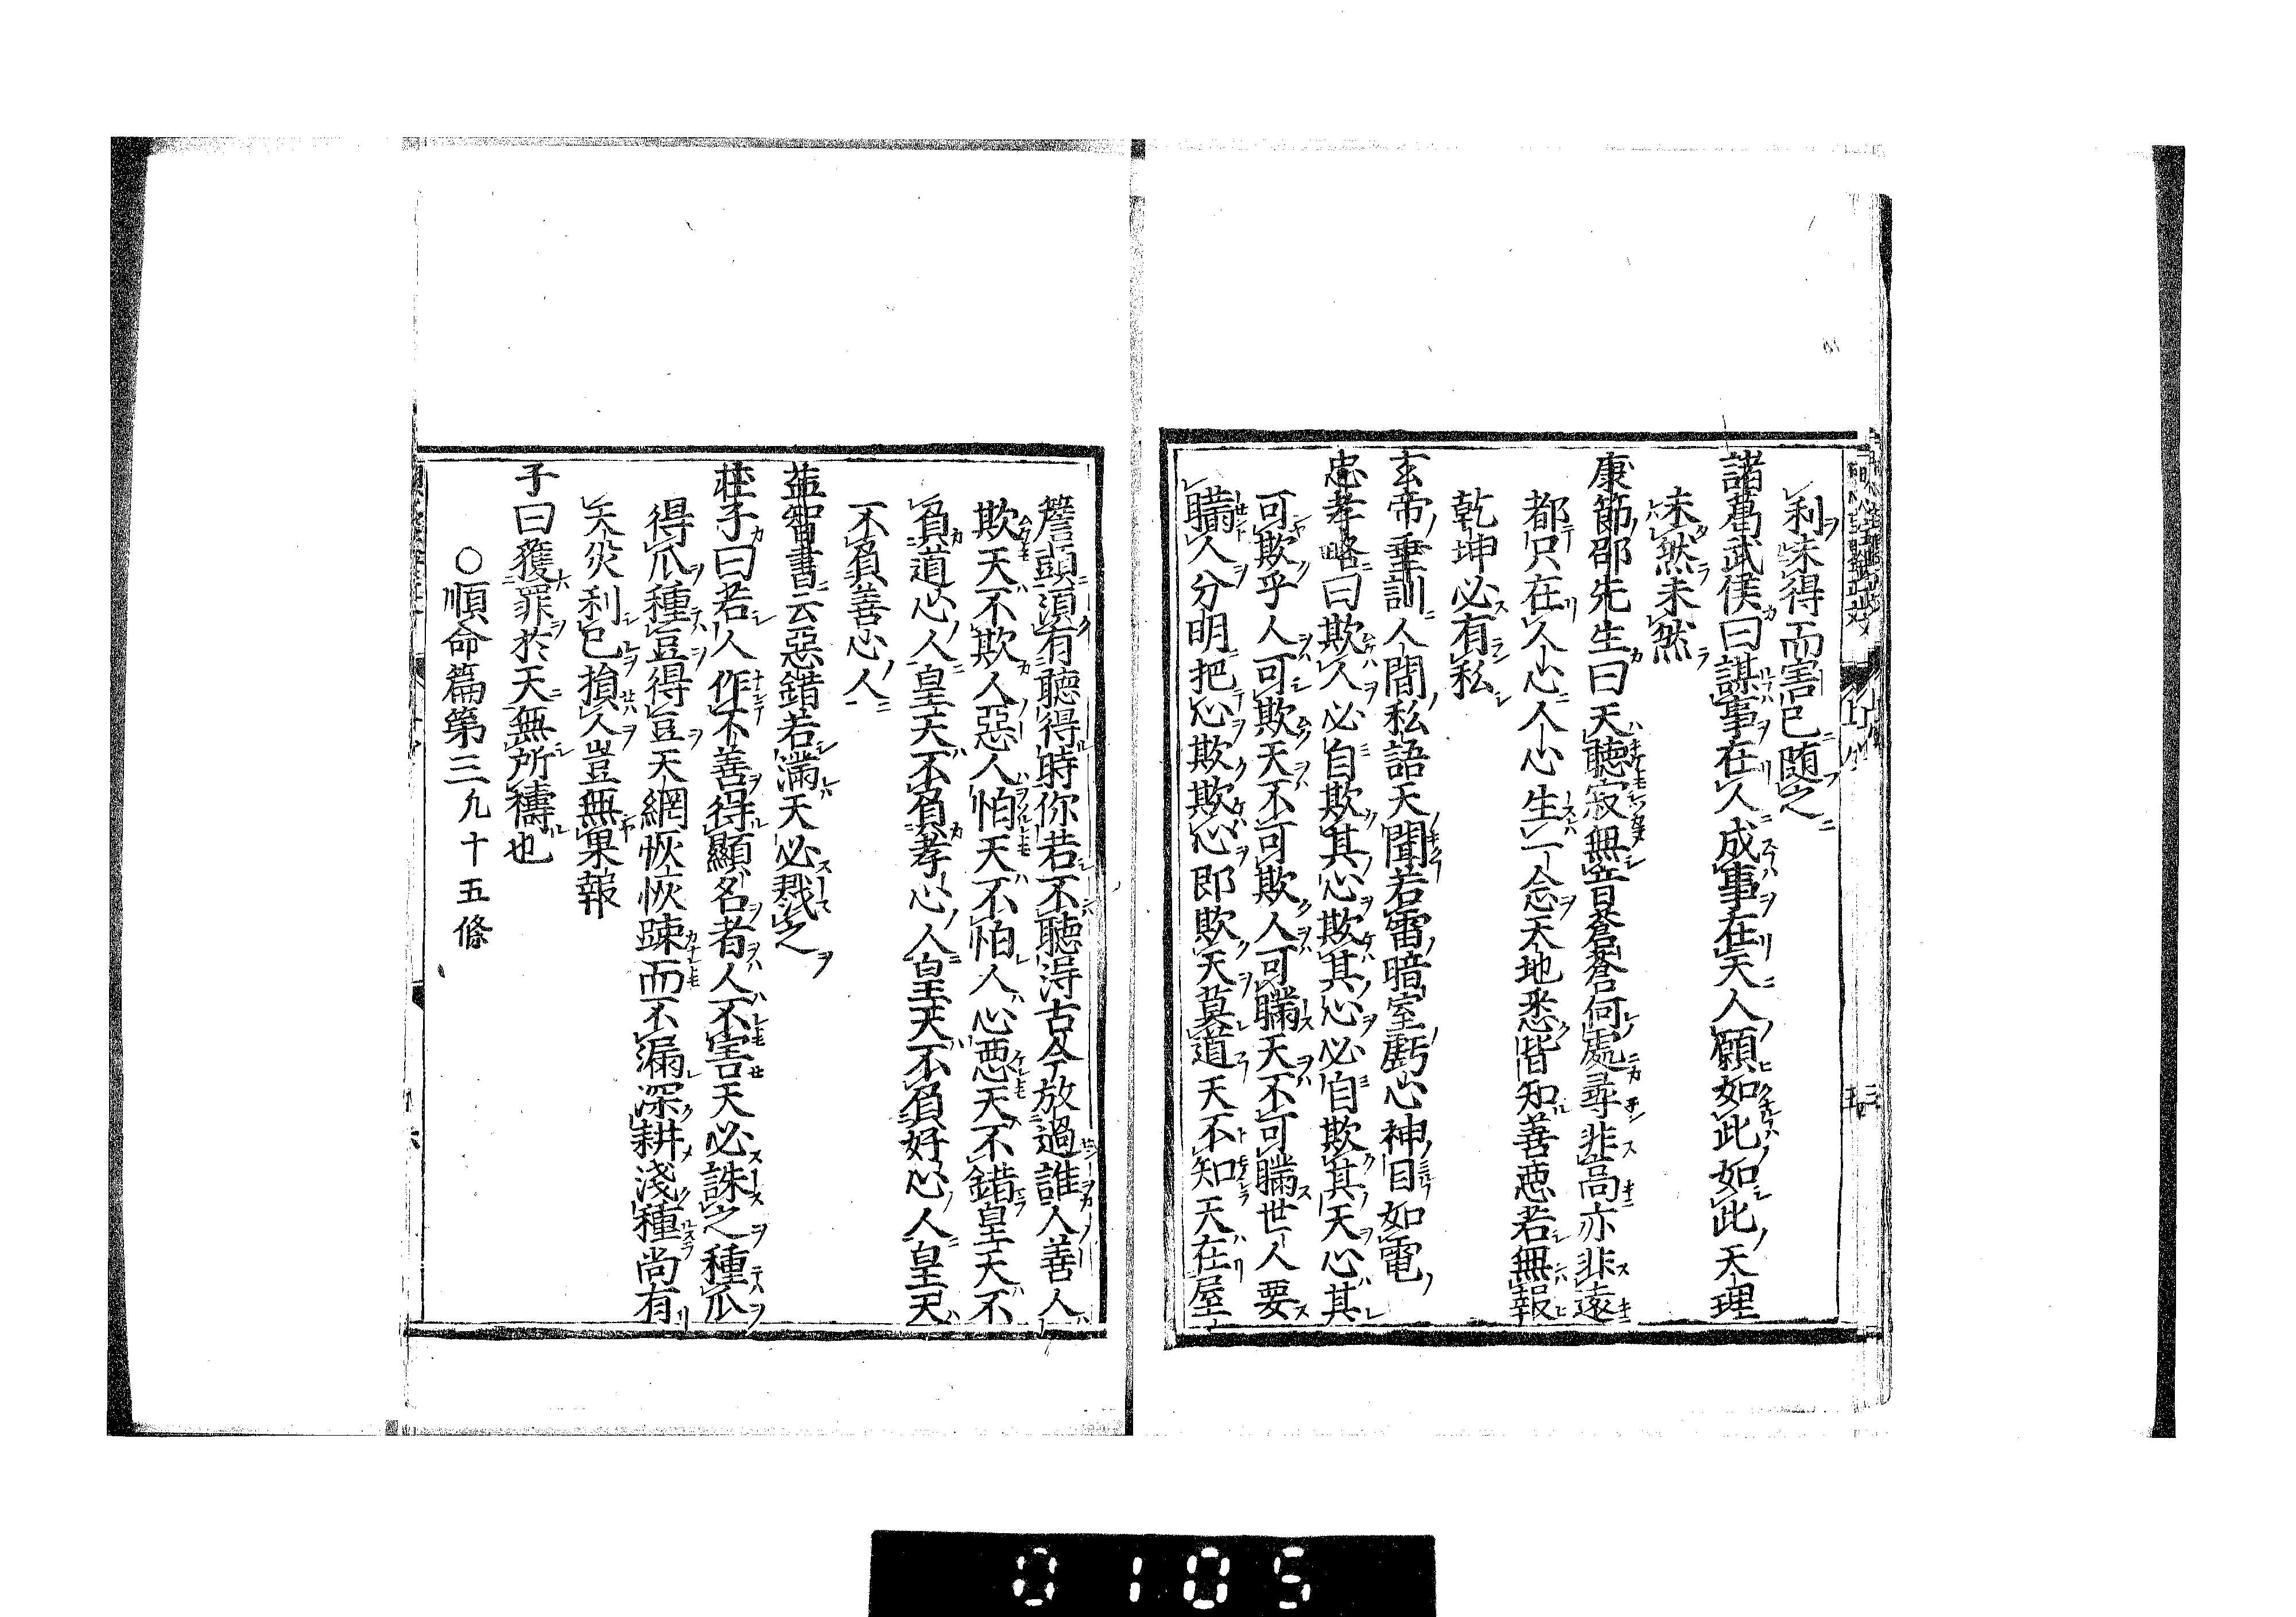 利未得而害已随之
諸葛武侯曰謀事在人成事在天人願如此如此天理
未然未然
康節邵先生曰天聽寂無音蒼蒼何處尋非高亦非遠
都只在人心人心生一念天地悉皆知善惡若無報
乾坤必有私
玄帝垂訓人間私語天聞若雷暗室虧心神目如電
忠孝略曰欺人必自欺其心欺其心必自欺其天心其
可欺乎人可欺天不可欺人可瞞天不可瞞世人要
瞞人分明把心欺欺心即欺天莫道天不知天在屋
簷頭須有聽得時你若不聽得古今放過誰人善人
欺天不欺人惡人怕天不怕人心惡天不錯皇天不
負道心人皇天不負孝心人皇天不負好心人皇天
不負善心人
益智書云惡錯若滿天必戮之
莊子曰若人作不善得顯名者人不害天必誅之種瓜
得瓜種豆得豆天網恢恢踈而不漏深耕淺種尚有
天災利已損人豈無果報
子曰獲罪於天無所禱也
○順命篇第三 九十五條
0105